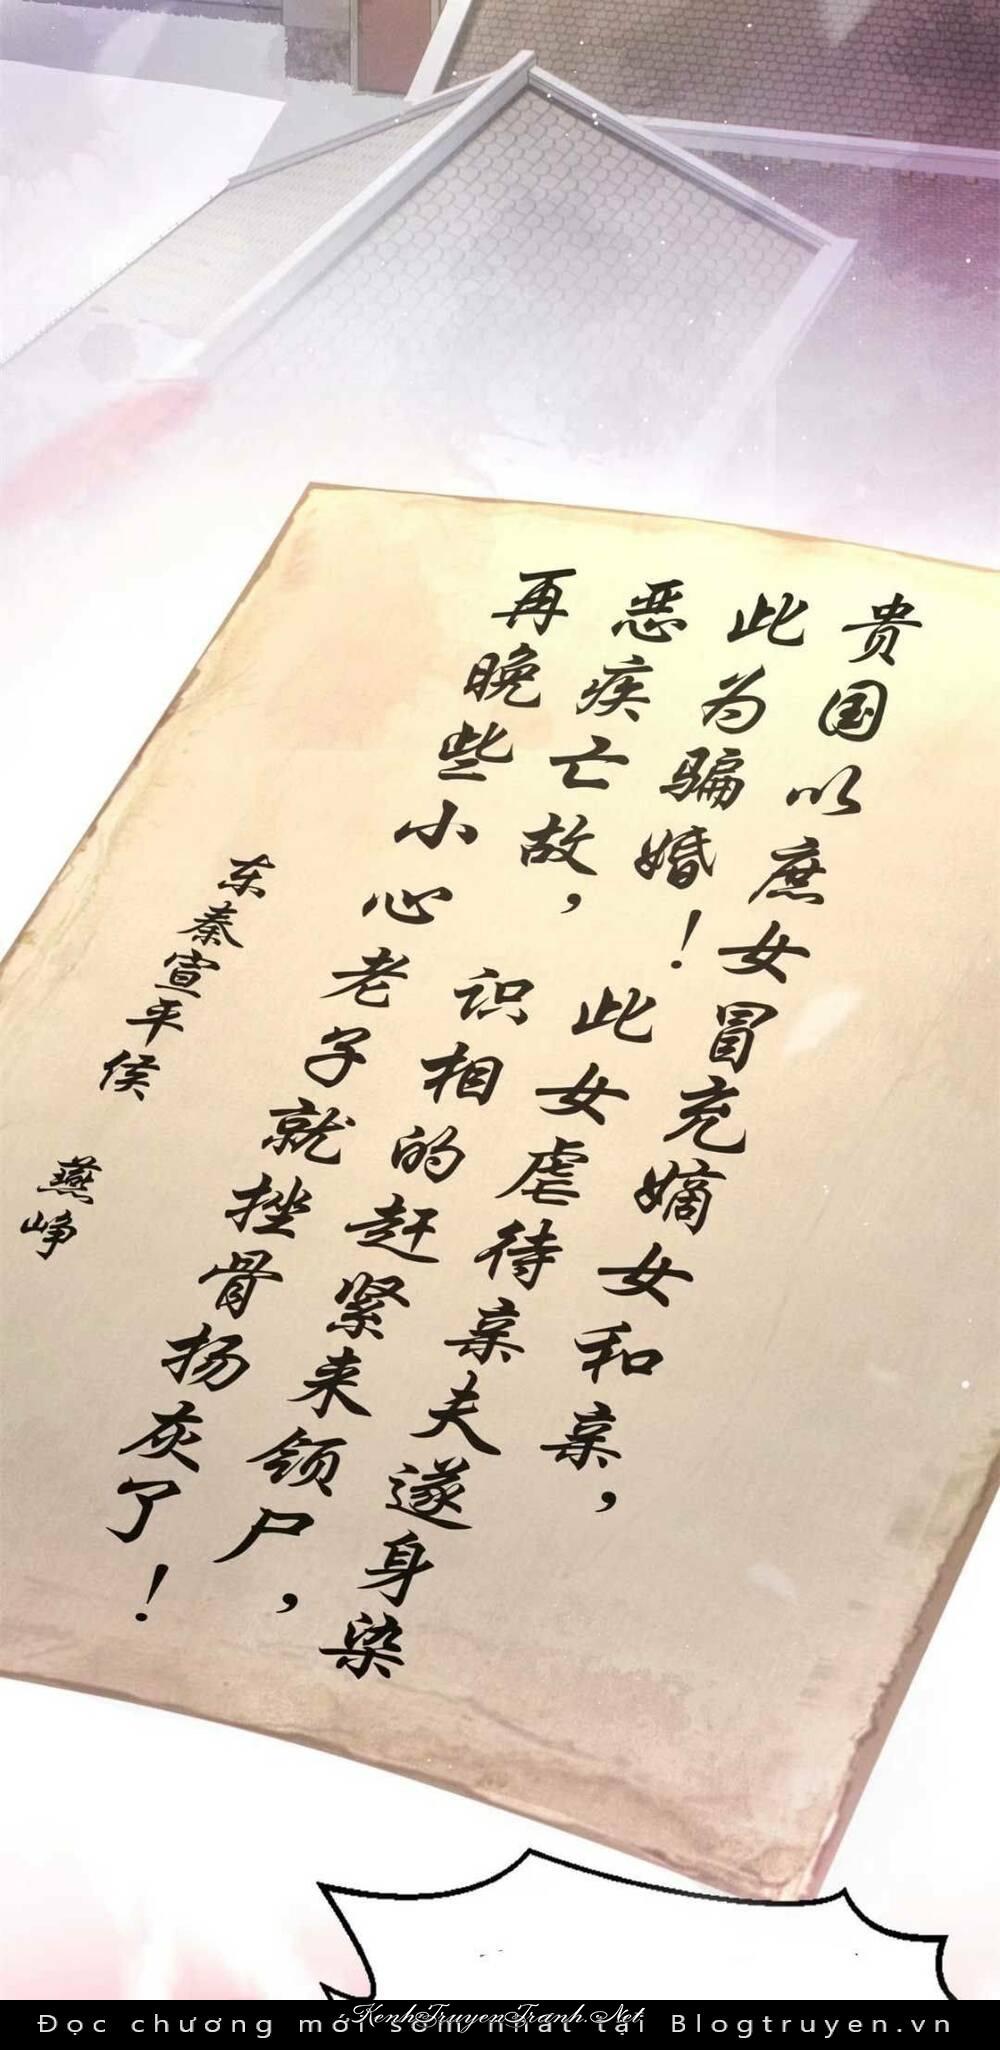 贵国以庶女冒充嫡女和亲，
此为骗婚！此女虐待亲夫遂身染
恶疾亡故，识相的赶紧来领尸，
再晚些小心老子就挫骨扬灰了！
东秦宣平侯 燕峥
KenhTruyenTranh.Net
Đọc chương mới sớm nhất tại Blogtruyen.vn